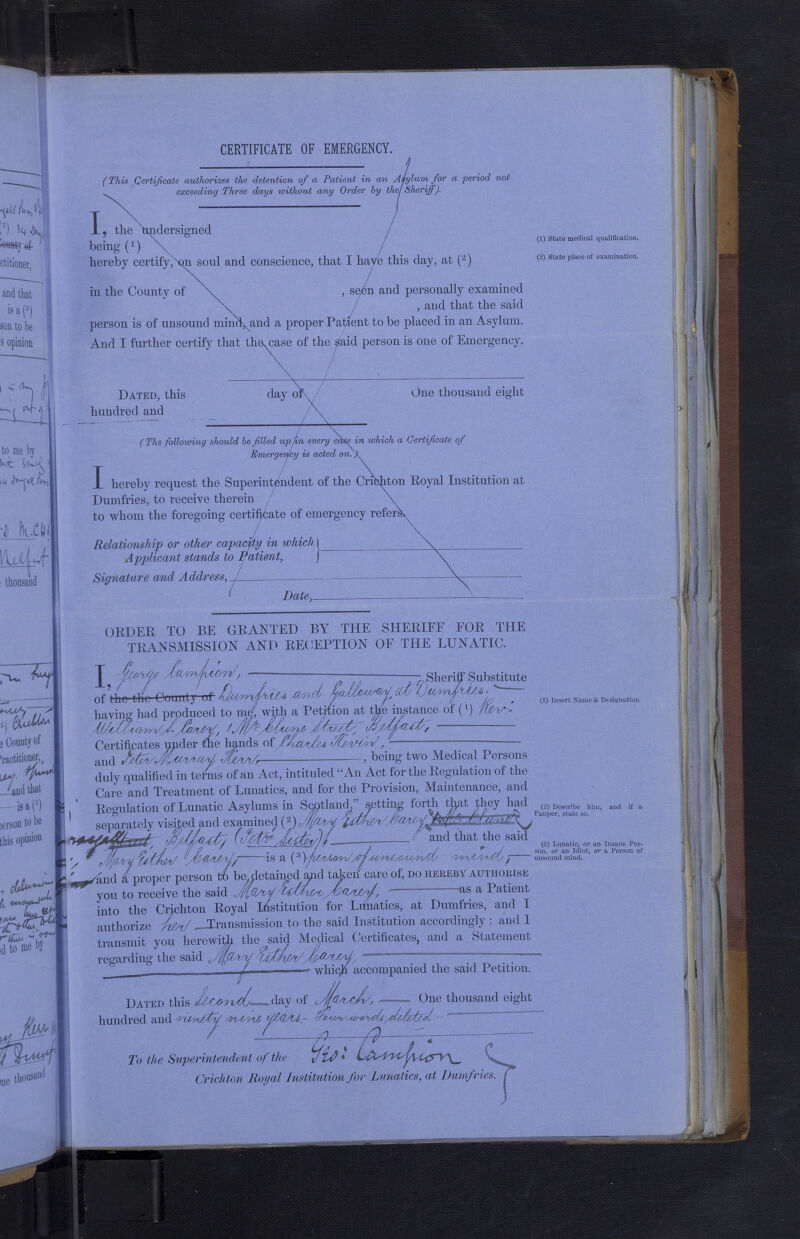 CERTIFICATE OF EMERGENCY.
(This Certificate authorizes the detention of a Patient in an Asylum for a period not
exceeding Three days without any Order by the Sheriff).
I, the undersigned
being (1)
hereby certify, on soul and conscience, that I have this day, at (2)
in the County of , seen and personally examined
, and that the said
person is of unsound mind, and a proper Patient to be placed in an Asylum.
And I further certify that the case of the said person is one of Emergency.
DATED, this day of One thousand eight
hundred and
(The following should be filled up in every case in which a Certificate of
Emergency is acted on.)
I hereby request the Superintendent of the Crichton Royal Institution at
Dumfries, to receive therein
to whom the foregoing certificate of emergency refers.
Relationship or other capacity in which
Applicant stands to Patient,
Signature and Address,
Date,
(1) State medical qualification.
(2) State place of examination.
ORDER TO BE GRANTED BY THE SHERIFF FOR THE
TRANSMISSION AND RECEPTION OF THE LUNATIC.
I, George Campion, Sheriff Substitute
of the the County of Dumfries and Galloway, at Dumfries,
having had produced to me, with a Petition at the instance of (1) Rev.
William S. Carey, 1, McClune Street, Belfast,
Certificates under the hands of Charles Nevin,
and Peter Murray Kerr, being two Medical Persons
duly qualified in terms of an Act, intituled "An Act for the Regulation of the
Care and Treatment of Lunatics, and for the Provision, Maintenance, and
Regulation of Lunatic Asylums in Scotland," setting forth that they had
separately visited and examined (2) Mary Esther Carey,
Belfast, (Petrs Sister), and that the said
Mary Esther Carey, is a (3) person of unsound mind,
and a proper person to be detained and taken care of, DO HEREBY AUTHORISE
you to receive the said Mary Esther Carey, as a Patient
into the Crichton Royal Institution for Lunatics, at Dumfries, and I
authorize her Transmission to the said Institution accordingly: and I
transmit you herewith the said Medical Certificates, and a Statement
regarding the said Mary Esther Carey,
which accompanied the said Petition.
DATED this Second day of March, One thousand eight
hundred and ninety nine years.- Four words deleted.-
Geo: Campion
To the Superintendent of the
Crichton Royal Institution for Lunatics, at Dumfries.
(1) Insert Name & Designation
(2) Describe him, and if a
Pauper, state so.
(3) Lunatic, or an Insane Per-
son, or an Idiot, or a Person of
unsound mind.
County of
ctitioner,
and that
is a (3)
son to be
s opinion
to me by
thousand
County of
ractitioner,
and that
is a (3)
person to be
this opinion
d to me by
Kerr
ne thousand